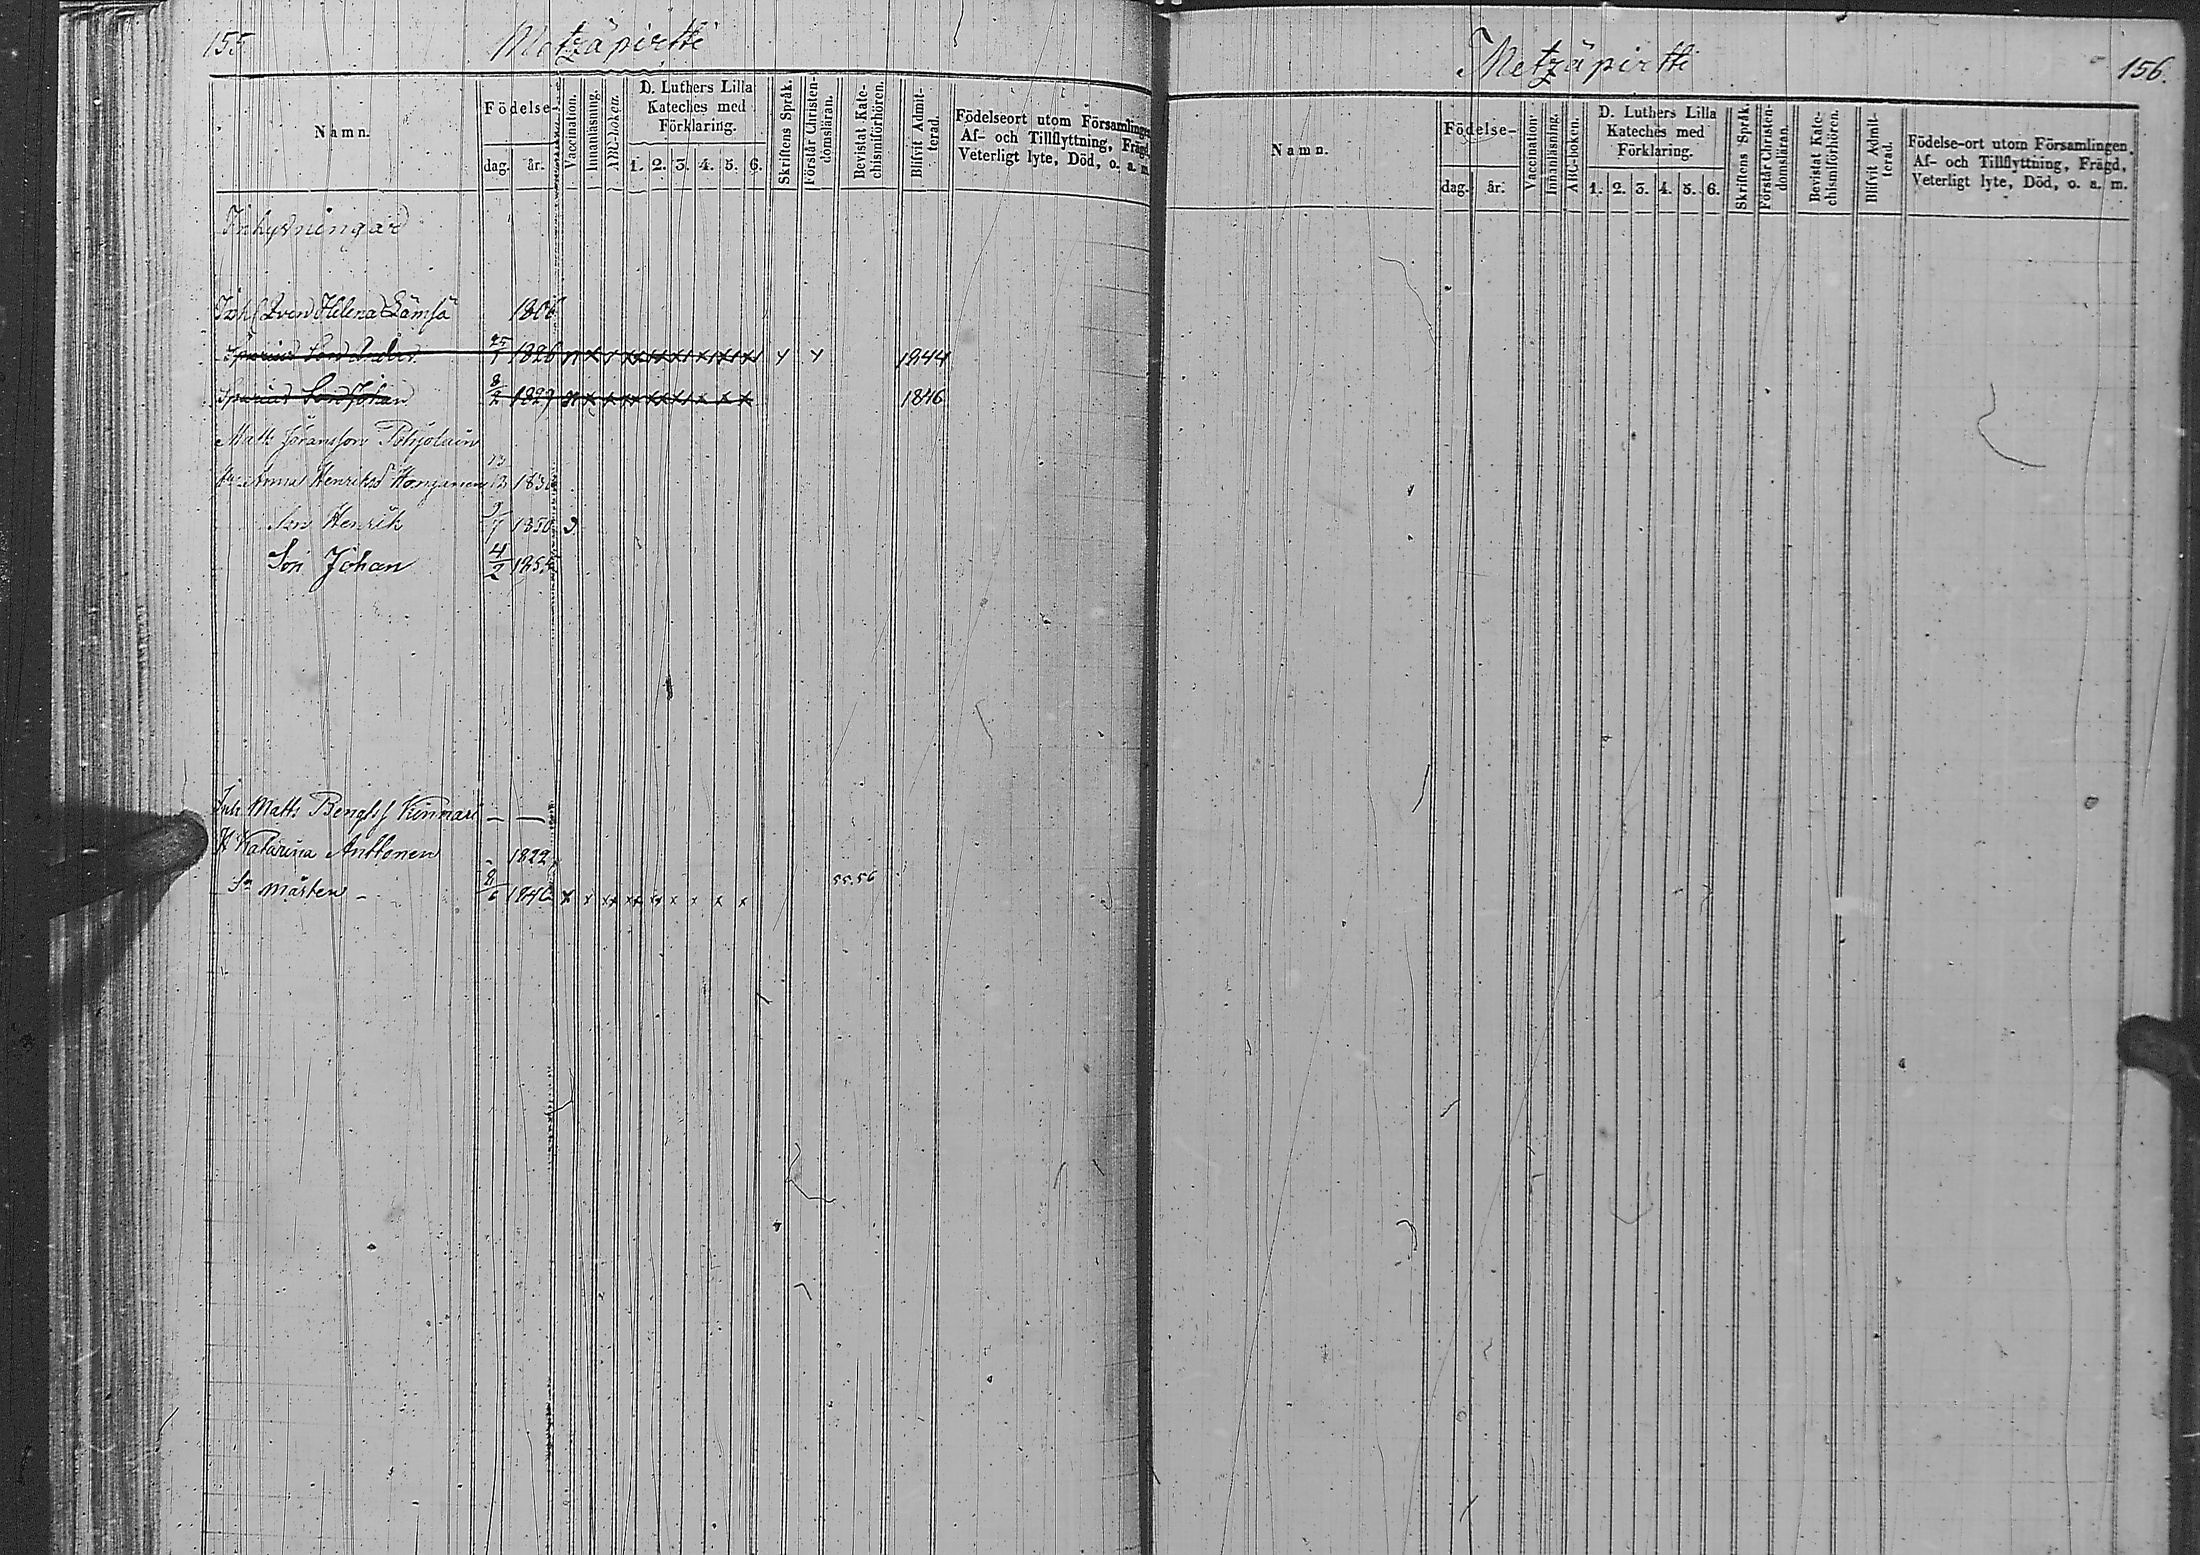 155 Metzäpirtti
Namn. Födelse- dag. år. Vaccination. Innanläsning. ABC-boken. D. Luthers Lilla Kateches med Förklaring. 1. 2. 3. 4. 5. 6. Skriftens Språk. Förstår Christendomsläran. Bevistat Katechismiförhören. Blifvit Admitterad. Födelseort utom Församlingen, Af- och Tillflyttning, Frägd, Veterligt lyte, Död, o. a. m.
Inhysningar
Inh Helena Lämsä 1806
Spurius Son 25/1 1826 n x x x x x x x x 1844
Spurius Son Johan 8/2 1829 n x x x x x x x x 1846
Matts Göransson Pohjolain
Anna Henriksd 13 1830
Son Henrik 9/7 1850
Son Johan 4/2 1855
Inh Matts Bengtss Kinnari — —
H Katarina Anttonen - 1822
Sn Mårten - 8/6 1846 x x x x x x x x x x 55.56
Metzäpirtti 156.
Namn. Födelse- dag. år. Vaccination. Innanläsning. ABC-boken. D. Luthers Lilla Kateches med Förklaring. 1. 2. 3. 4. 5. 6. Skriftens Språk. Förstår Christendomsläran. Bevistat Katechismiförhören. Blifvit Admitterad. Födelse-ort utom Församlingen, Af- och Tillflyttning, Frägd, Veterligt lyte, Död, o. a. m.